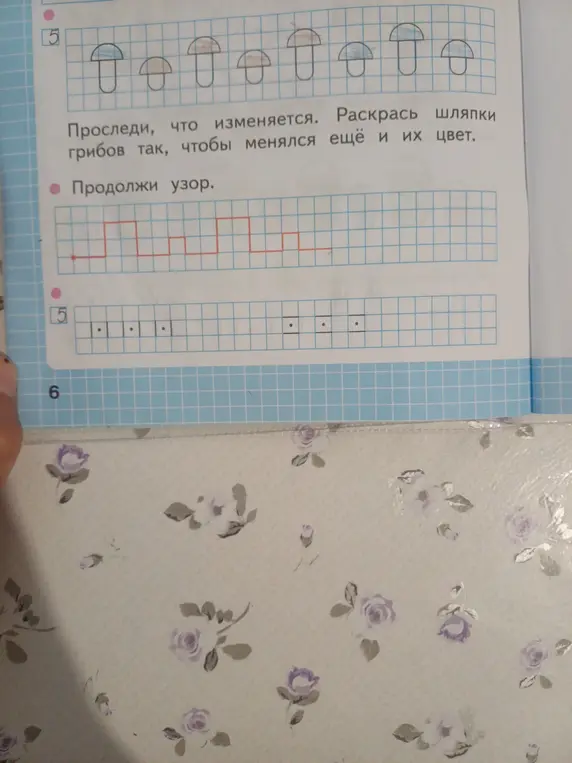 5
Проследи, что изменяется. Раскрась шляпки
грибов так, чтобы менялся ещё и их цвет.
Продолжи узор.
5
6